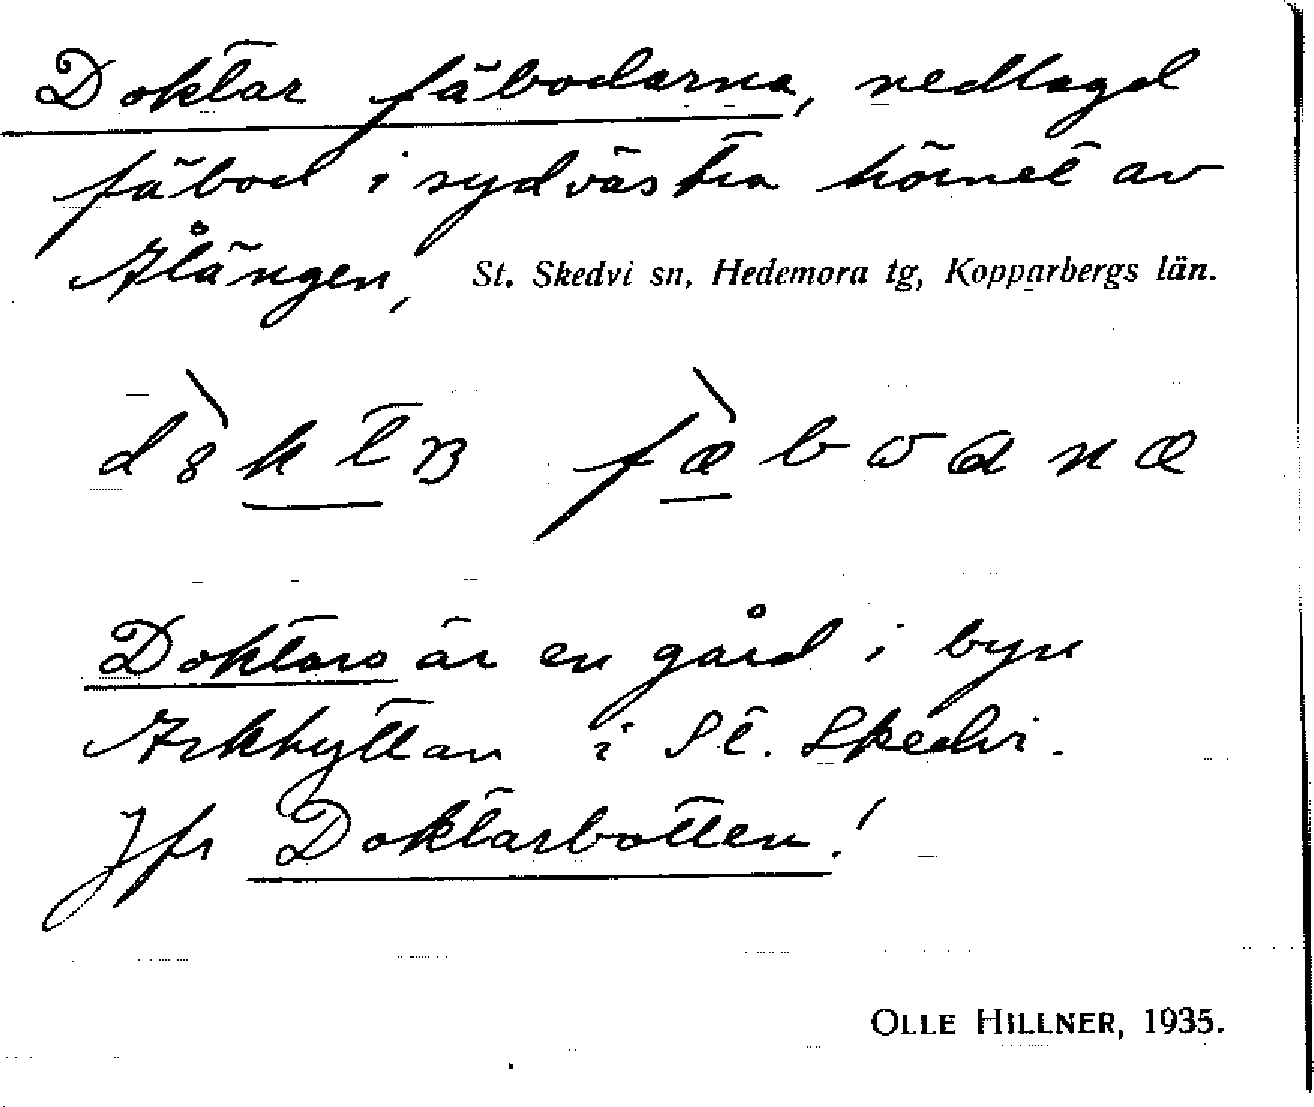 Doktar fäbodarna, nedlagd
fäbod i sydvästra hörnet av
Ålängen, St. Skedvi sn, Hedemora tg, Kopparbergs län.
fæbωɑnæ
Doktars är en gård i byn
Arkhyttan i St. Skedvi.
Jfr Doktarbotten!
OLLE HILLNER, 1935.